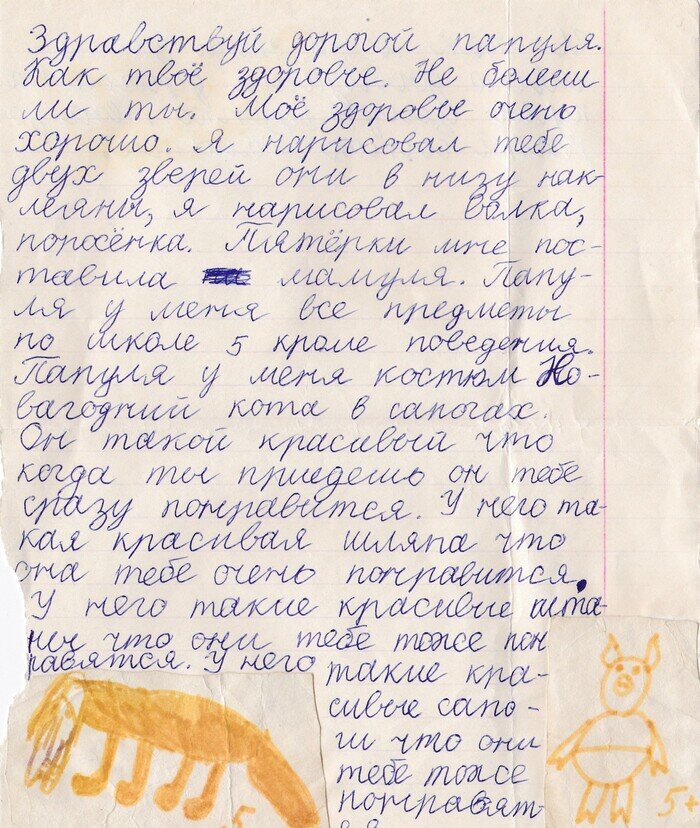 Здравствуй дорогой папуля.
Как твоё здоровье. Не болеш
ли ты. Моё здоровье очень
хорошо. Я нарисовал тебе
двух зверей они в низу нак-
леяны, я нарисовал волка,
поросёнка. Пятёрки мне пос-
тавила мамуля. Папу-
ля у меня все предметы
по школе 5 кроме поведения.
Папуля у меня костюм Но-
вагодний кота в сапогах.
Он такой красивый что
когда ты приедешь он тебе
сразу понравится. У него та-
кая красивая шляпа что
она тебе очень понравится.
У него такие красивые шта-
ны что они тебе тоже пон
равятся. У него такие кра-
сивые сапо-
ги что они
тебе тоже
понравят-
ся
5
5+